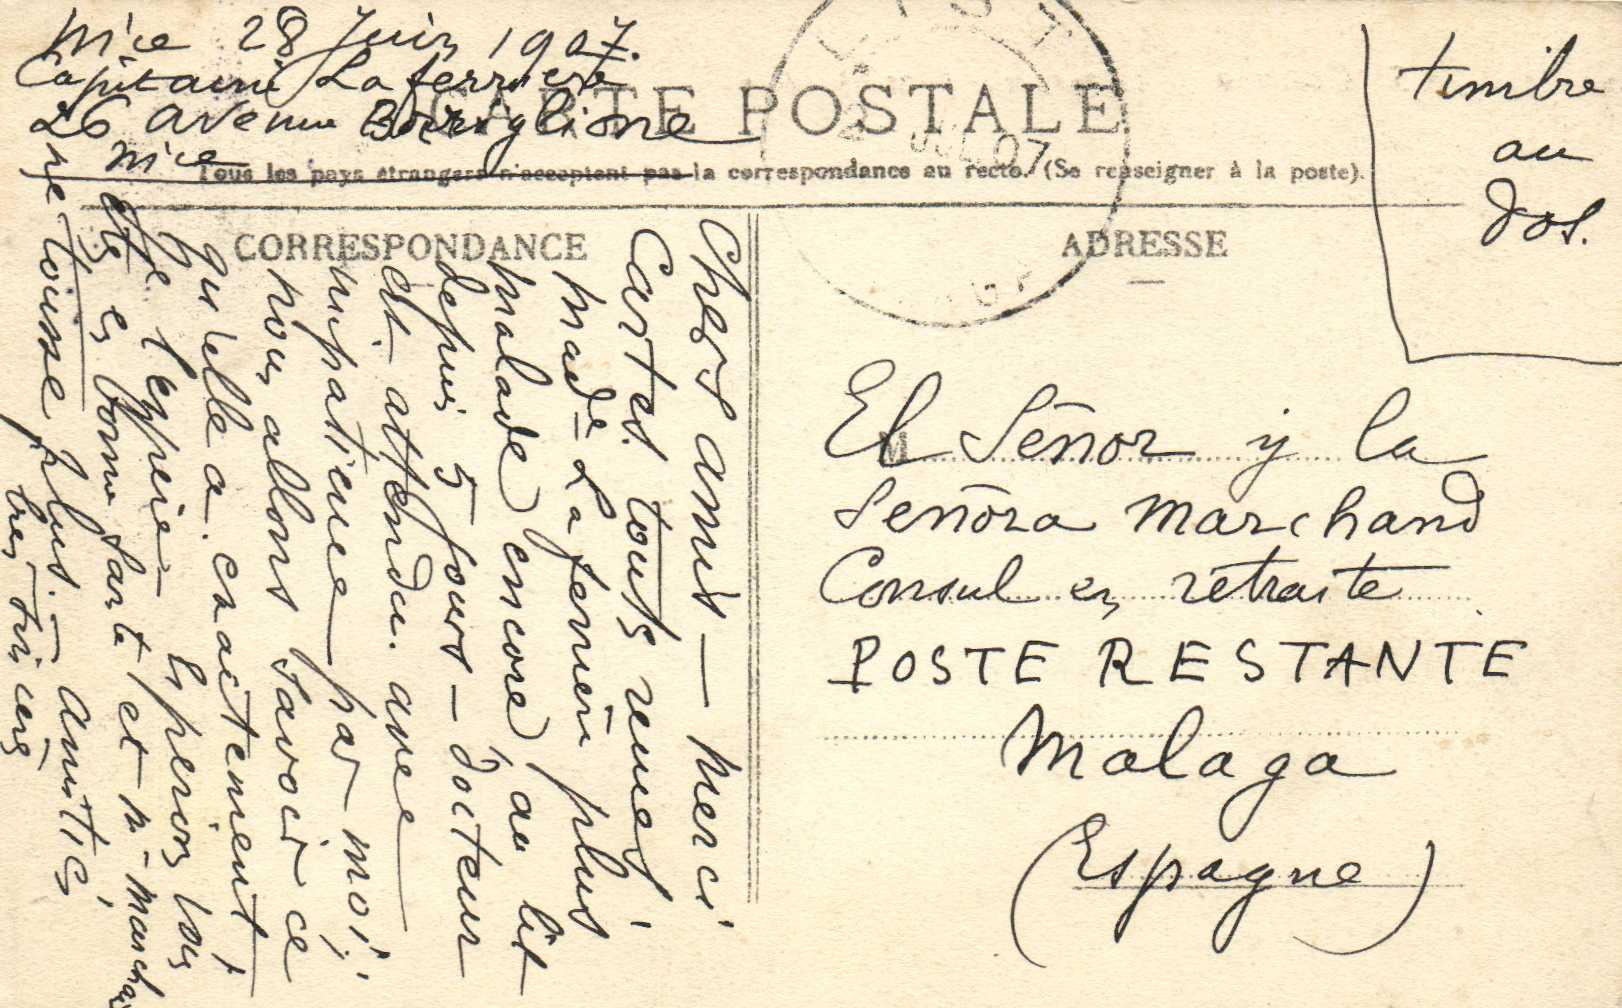 Nice 28 Juin 1907.
Capitaine Laferrière
26 Avenue Boriglione
Nice
CARTE POSTALE
Tous les pays étrangers n'acceptent pas la correspondance au recto. (Se renseigner à la poste).
timbre
au
dos.
CORRESPONDANCE
Chers amis — merci
cartes touts reues!
Made Laferrière plus
malade encore, au lit
depuis 5 jours — Docteur
est attendu. avec
impatience par moi;
nous allons savoir ce
qu'elle a exactement
Je l'espère — Espérons vous
êtes en bonne santé et M. Marchand
ne tousse plus. — Amitiés,
très sincères
ADRESSE
M
El Señor y la
Señora Marchand
Consul en retraite
POSTE RESTANTE
Malaga
(Espagne)